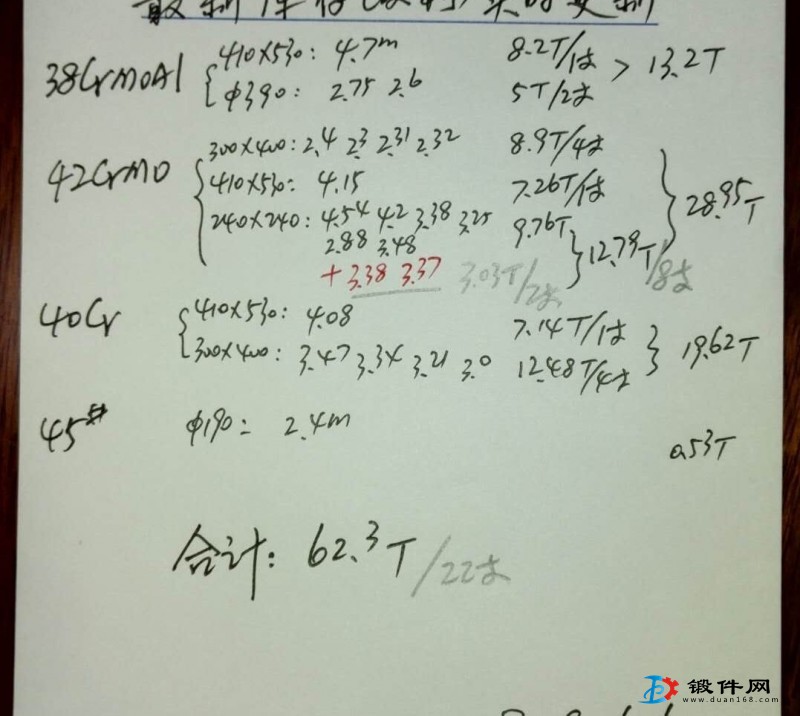 38CrMoAl
410×530: 4.7m 8.2T/1支 > 13.2T
Φ390: 2.75 2.6 5T/2支
42CrMo
300×400: 2.4 2.3 2.31 2.32 8.9T/4支
410×530: 4.15 7.26T/1支 28.95T
240×240: 4.54 4.2 3.38 3.25 9.76T
2.88 3.48 12.79T/8支
+3.38 3.37 3.03T/2支
40Cr
410×530: 4.08 7.14T/1支
300×400: 3.47 3.34 3.21 3.0 12.48T/4支 19.62T
45#
Φ190: 2.4m 0.53T
合计: 62.3T/22支
锻件网
www.duan168.com